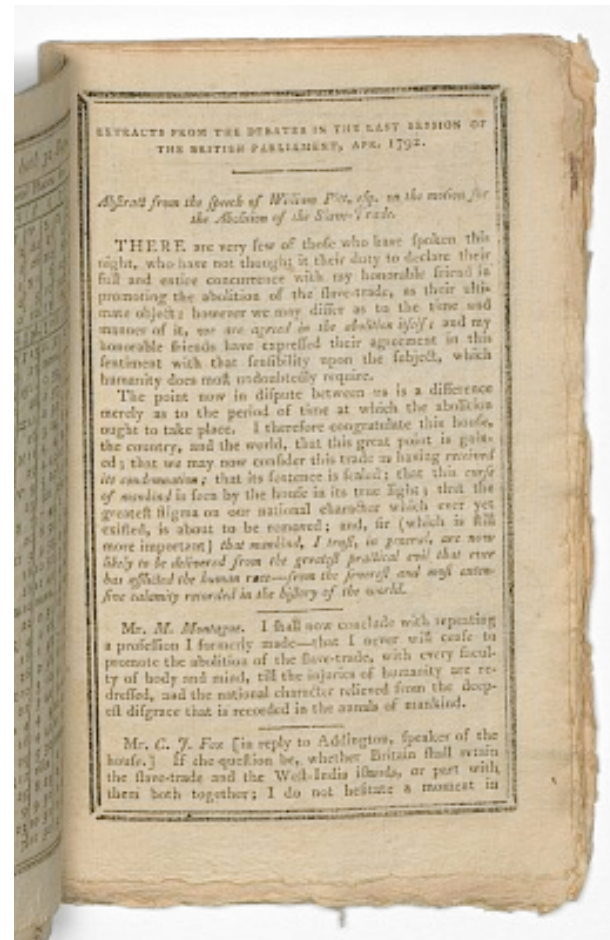 EXTRACTS FROM THE DEBATES IN THE LAST SESSION OF
THE BRITISH PARLIAMENT, APR. 1792.
Abstract from the speech of William Pitt, esq. on the motion for
the Abolition of the Slave-Trade.
THERE are very few of those who have spoken this
night, who have not thought it their duty to declare their
full and entire concurrence with my honorable friend in
promoting the abolition of the slave-trade, as their ulti-
mate object; however we may differ as to the time and
manner of it, we are agreed in the abolition itself; and my
honorable friends have expressed their agreement in this
sentiment with that sensibility upon the subject, which
humanity does most undoubtedly require.
The point now in dispute between us is a difference
merely as to the period of time at which the abolition
ought to take place. I therefore congratulate this house,
the country, and the world, that this great point is gain-
ed; that we may now consider this trade as having received
its condemnation; that its sentence is sealed; that this curse
of mankind is seen by the house in its true light; that the
greatest stigma on our national character which ever yet
existed, is about to be removed; and, sir (which is still
more important) that mankind, I trust, in general, are now
likely to be delivered from the greatest practical evil that ever
has afflicted the human race—from the severest and most exten-
sive calamity recorded in the history of the world.
Mr. M. Montague. I shall now conclude with repeating
a profession I formerly made—that I never will cease to
promote the abolition of the slave-trade, with every facul-
ty of body and mind, till the injuries of humanity are re-
dressed, and the national character relieved from the deep-
est disgrace that is recorded in the annals of mankind.
Mr. C. J. Fox [in reply to Addington, speaker of the
house.] If the question be, whether Britain shall retain
the slave-trade and the West-India islands, or part with
them both together; I do not hesitate a moment in